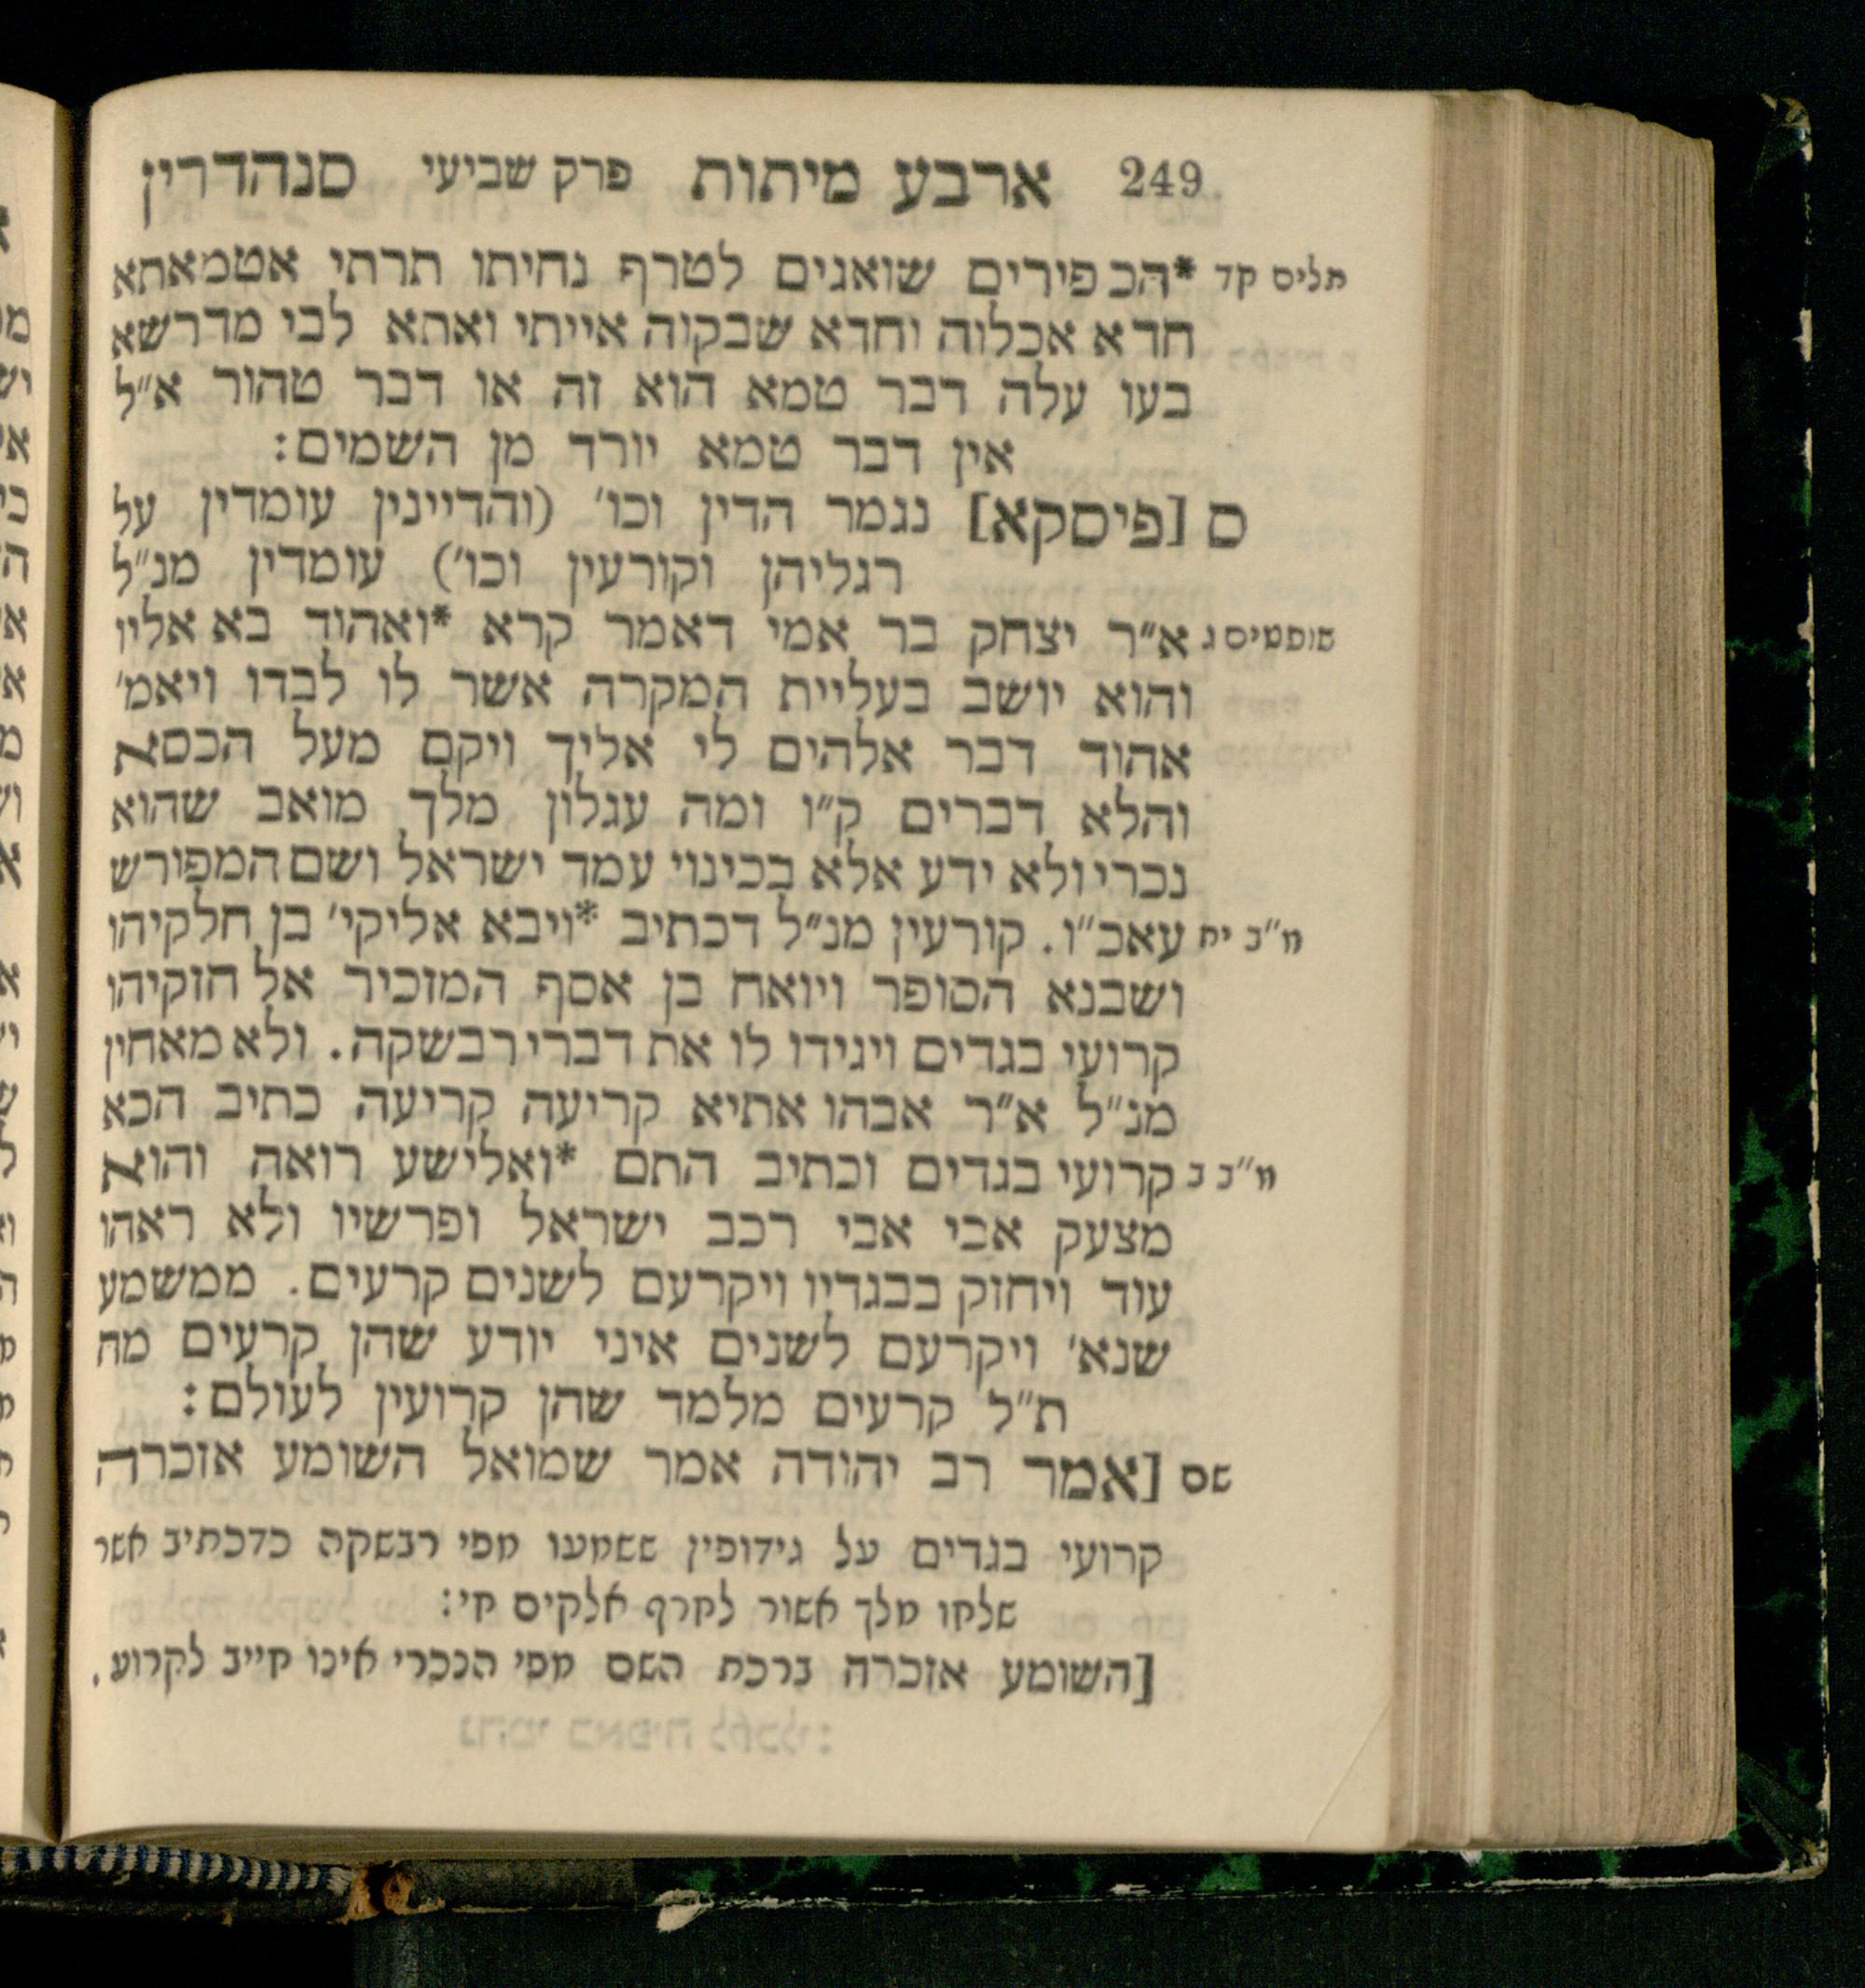 249 ארבע מיתות פרק שביעי סנהדרין
תלים קד *הכפירים שואגים לטרף נחיתו תרתי אטמאתא
חדא אכלוה וחדא שבקוה אייתי ואתא לבי מדרשא
בעו עלה דבר טמא הוא זה או דבר טהור א״ל
אין דבר טמא יורד מן השמים:
ס [פיסקא] נגמר הדין וכו׳ (והדיינין עומדין על
רגליהן וקורעין וכו׳) עומדין מנ״ל
שופטים ג א״ר יצחק בר אמי דאמר קרא *ואהוד בא אליו
והוא יושב בעליית המקרה אשר לו לבדו ויאמ׳
אהוד דבר אלהים לי אליך ויקם מעל הכסא
והלא דברים ק״ו ומה עגלון מלך מואב שהוא
נכרי ולא ידע אלא בכינוי עמד ישראל ושם המפורש
מ״ב יח עאכ״ו. קורעין מנ״ל דכתיב *ויבא אליקי׳ בן חלקיהו
ושבנא הסופר ויואח בן אסף המזכיר אל חזקיהו
קרועי בגדים ויגידו לו את דברי רבשקה. ולא מאחין
מנ״ל א״ר אבהו אתיא קריעה קריעה כתיב הכא
מ״ב ב קרועי בגדים וכתיב התם *ואלישע רואה והוא
מצעק אבי אבי רכב ישראל ופרשיו ולא ראהו
עוד ויחזק בבגדיו ויקרעם לשנים קרעים. ממשמע
שנא׳ ויקרעם לשנים איני יודע שהן קרעים מה
ת״ל קרעים מלמד שהן קרועין לעולם:
שם [אמר רב יהודה אמר שמואל השומע אזכרה
קרועי בגדים על גידופין ששמעו מפי רבשקה כדכתיב אשר
שלחו מלך אשור לחרף אלקים חי:
[השומע אזכרה ברכת השם מפי הנכרי אינו חייב לקרוע.